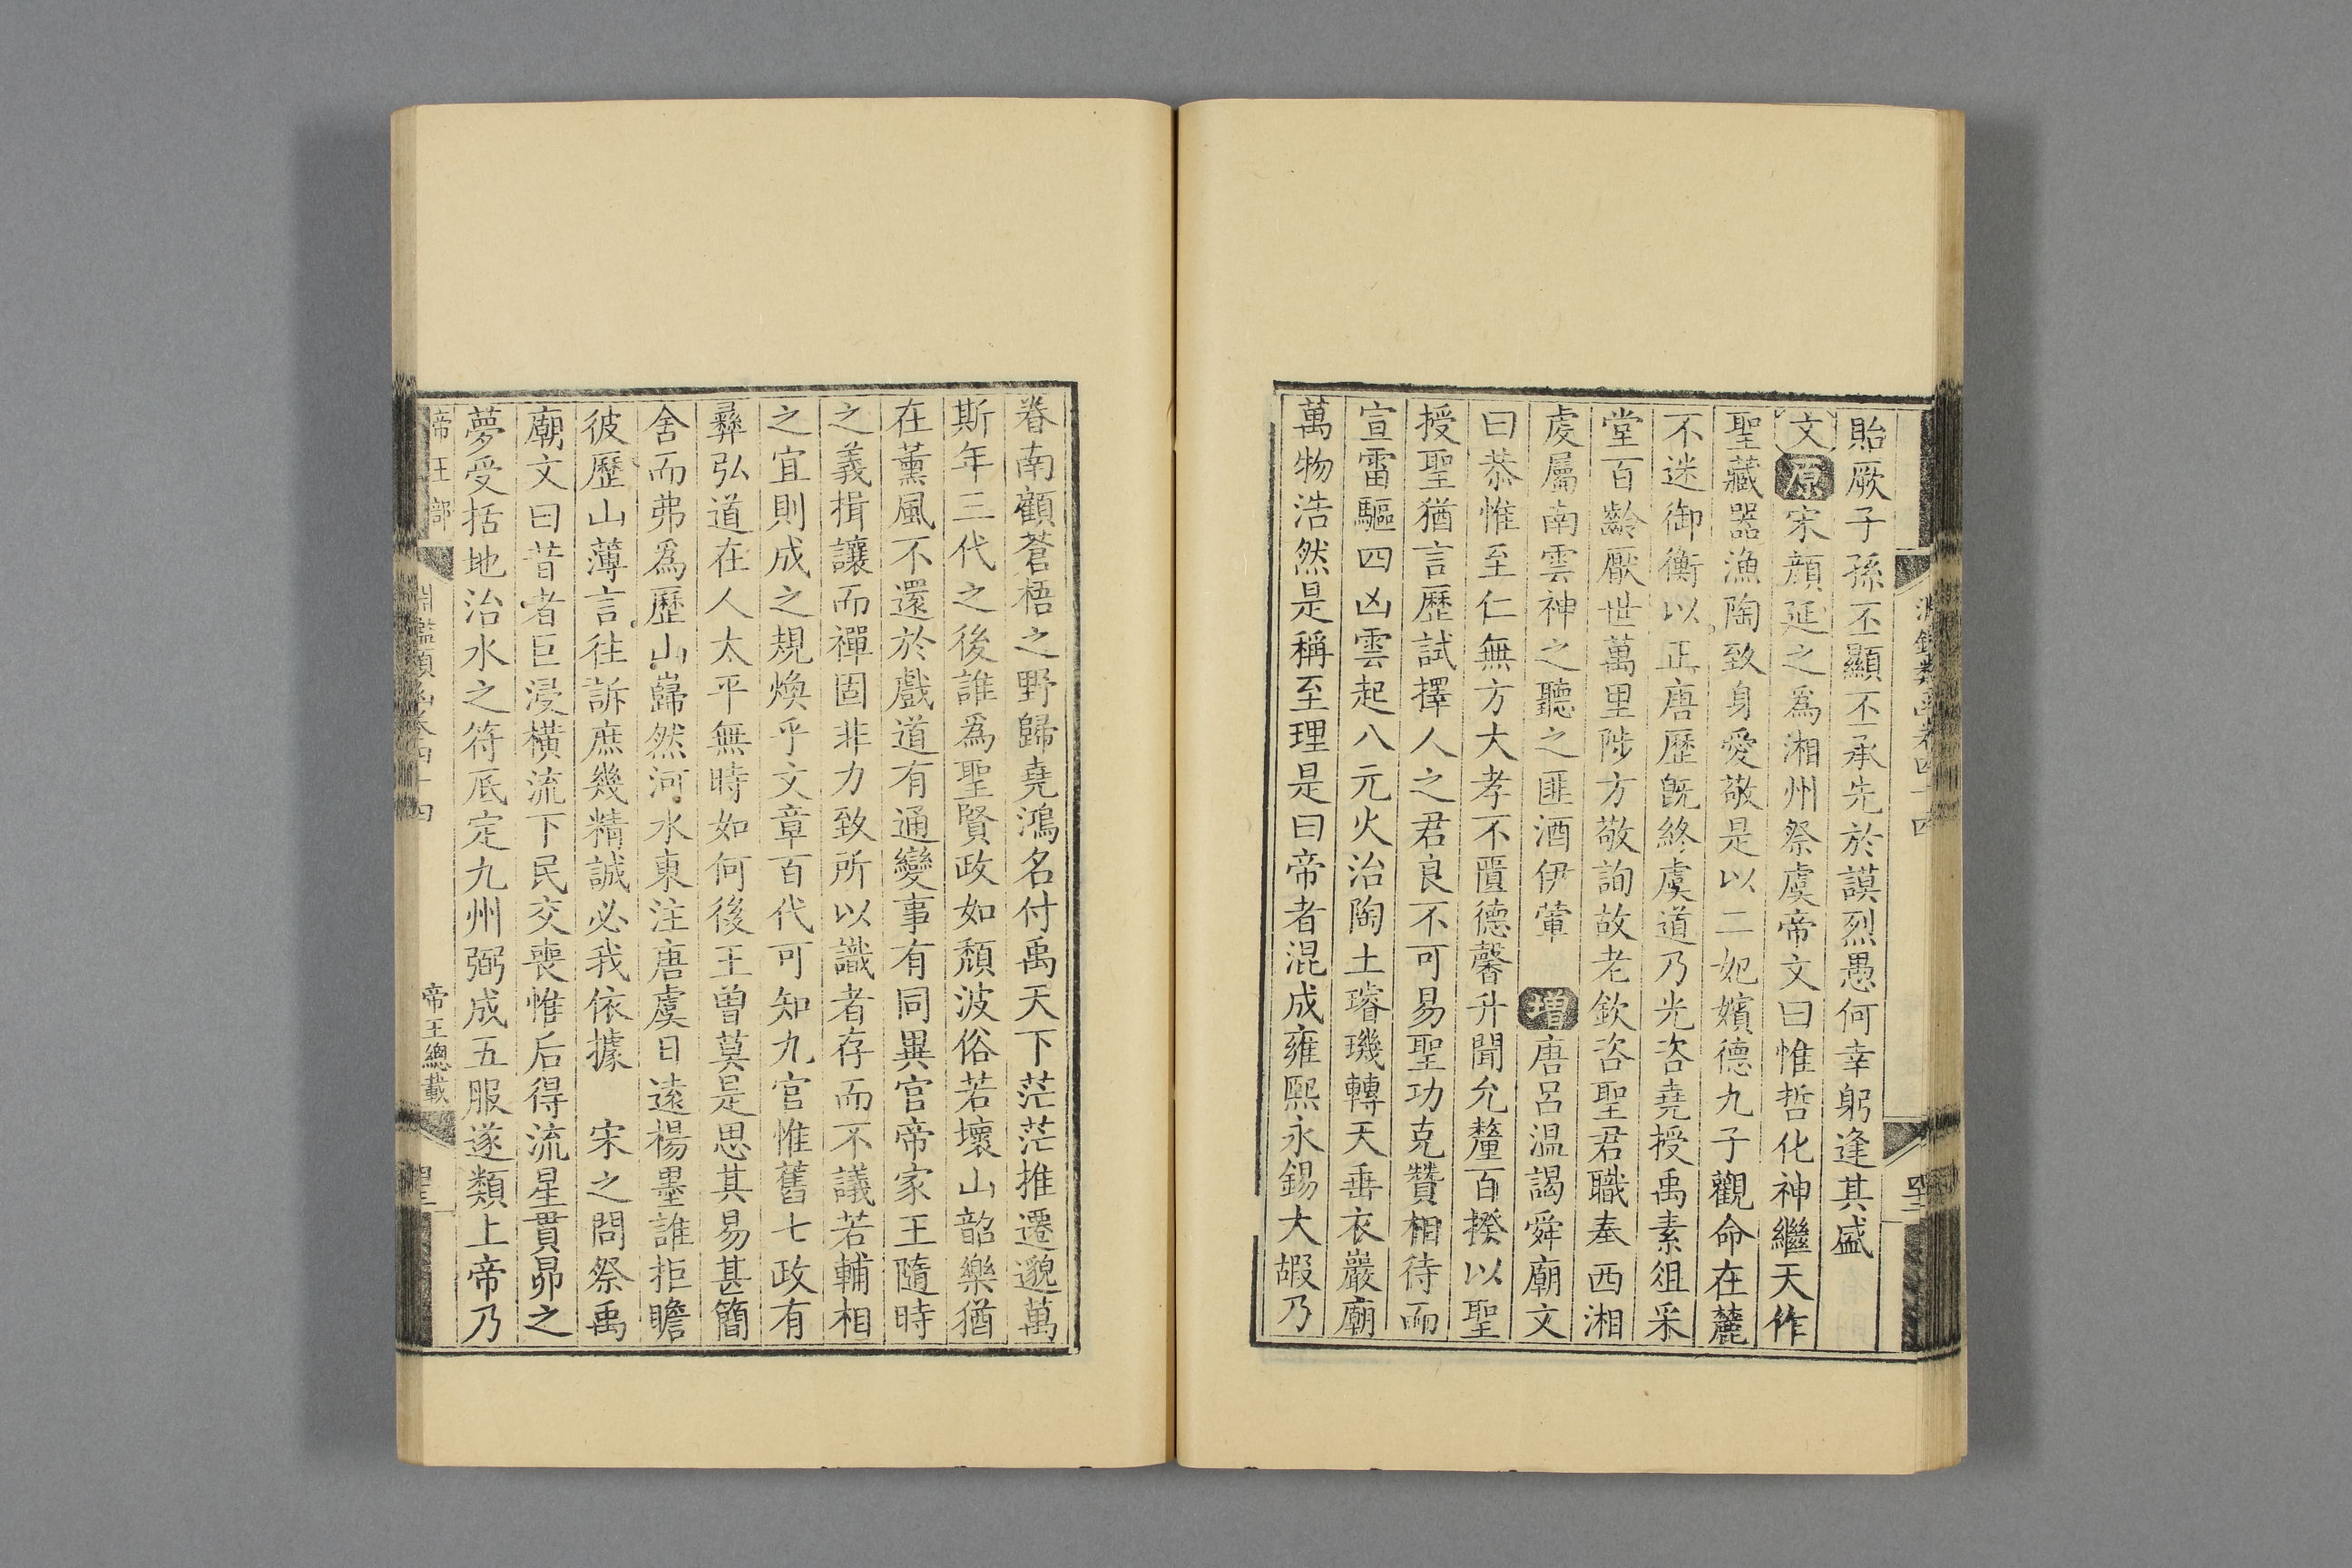 貽厥子孫丕顯丕承先於謨烈愚何幸躬逢其盛
文原宋顔延之爲湘州祭虞帝文曰惟哲化神繼天作
聖藏器漁陶致身愛敬是以二妃嬪德九子觀命在麓
不迷御衡以正唐歷旣終虞道乃光咨堯授禹素俎采
堂百齡厭世萬里陟方敬詢故老欽咨聖君職奉西湘
虔屬南雲神之聽之匪酒伊葷 增唐呂温謁舜廟文
曰恭惟至仁無方大孝不匱德馨升聞允釐百揆以聖
授聖猶言歷試擇人之君良不可易聖功克贊相待而
宣雷驅四凶雲起八元火治陶土璿璣轉天垂衣巖廟
萬物浩然是稱至理是曰帝者混成雍熙永錫大嘏乃
眷南顧蒼梧之野歸堯鴻名付禹天下茫茫推遷邈萬
斯年三代之後誰爲聖賢政如頹波俗若壞山韶樂猶
在薰風不還於戲道有通變事有同異官帝家王隨時
之義揖讓而禪固非力致所以識者存而不議若輔相
之宜則成之規煥乎文章百代可知九官惟舊七政有
彝弘道在人太平無時如何後王曾莫是思其易甚簡
舍而弗爲歷山巋然河水東注唐虞日遠楊墨誰拒瞻
彼歷山薄言往訴庶幾精誠必我依據 宋之問祭禹
廟文曰昔者巨浸橫流下民交喪惟后得流星貫昴之
夢受括地治水之符底定九州弼成五服遂類上帝乃
帝王部 淵鑑類函卷四十四 帝王總載